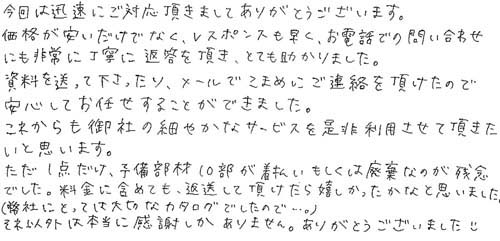 今回は迅速にご対応頂きましてありがとうございます。
価格が安いだけでなく、レスポンスも早く、お電話での問い合わせ
にも非常に丁寧に返答を頂き、とても助かりました。
資料を送って下さったり、メールでこまめにご連絡を頂けたので
安心してお任せすることができました。
これからも御社の細やかなサービスを是非利用させて頂きた
いと思います。
ただ1点だけ、予備部材10部が着払いもしくは廃棄なのが残念
でした。料金に含めても、返送して頂けたら嬉しかったかなと思いました。
(弊社にとっては大切なカタログでしたので…。)
それ以外は本当に感謝しかありません。ありがとうございました